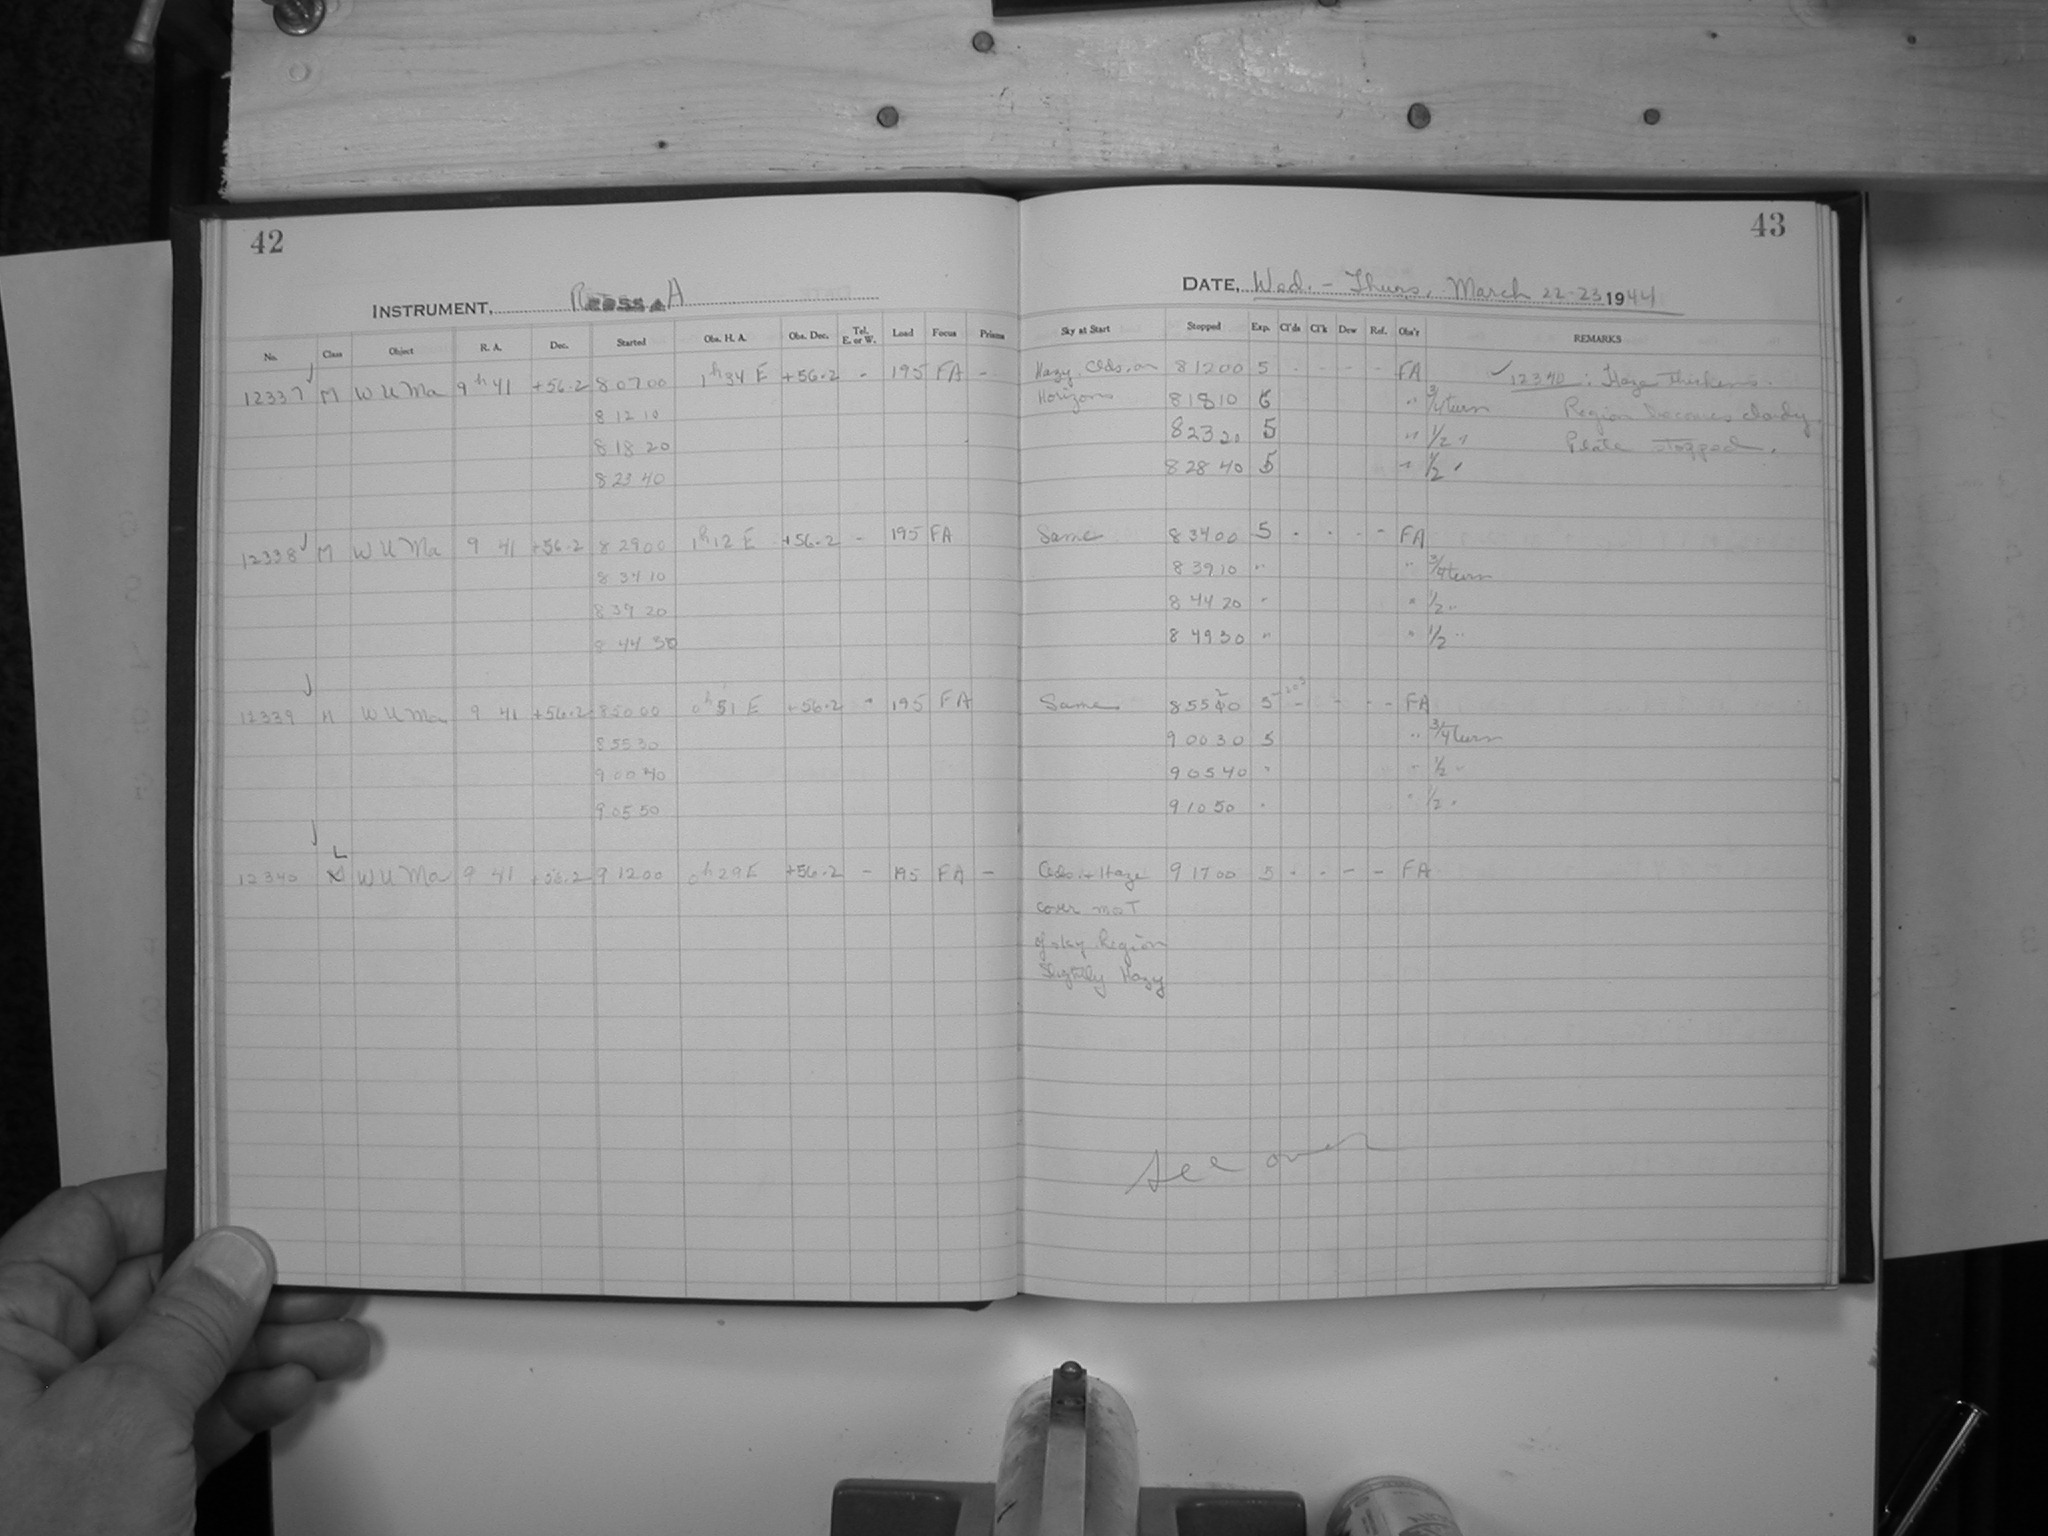 42
INSTRUMENT, Ross A
No. Class Object R. A. Dec. Started Obs. H. A. Obs. Dec. Tel. E. or W. Load Focus Prisms
12337 M W U Ma 9h 41 +56.2 8 07 00 1h34 E +56.2 - 195 FA -
8 12 10
8 18 20
8 23 40
12338 M W U Ma 9 41 +56.2 8 29 00 1h12 E +56.2 - 195 FA
8 34 10
8 39 20
8 44 30
12339 M W U Ma 9 41 +56.2 8 50 00 0h51 E +56.2 - 195 FA
8 55 30
9 00 40
9 05 50
L
12340 W U Ma 9 41 +56.2 9 12 00 0h29 E +56.2 - 195 FA -
43
DATE, Wed. - Thurs, March 22-23 1944
Sky at Start Stopped Exp. Cl'ds Cl'k Dew Ref. Obs'r REMARKS
Hazy. Clds. on 8 12 00 5 - - - - FA ✓ 12340 : Haze thickens.
Horizons 8 18 10 6 " 3/4 turn Region becomes cloudy.
8 23 20 5 " 1/2 " Plate stopped.
8 28 40 5 " 1/2 "
Same 8 34 00 5 - - - FA
8 39 10 " " 3/4 turn
8 44 20 " " 1/2 "
8 49 30 " " 1/2 "
Same 8 55 20 5 - 20s - - - - FA
9 00 30 5 " 3/4 turn
9 05 40 " " 1/2 "
9 10 50 " " 1/2 "
Clds. + Haze 9 17 00 5 - - - - FA
cover most
of sky. Region
Slightly Hazy
See over